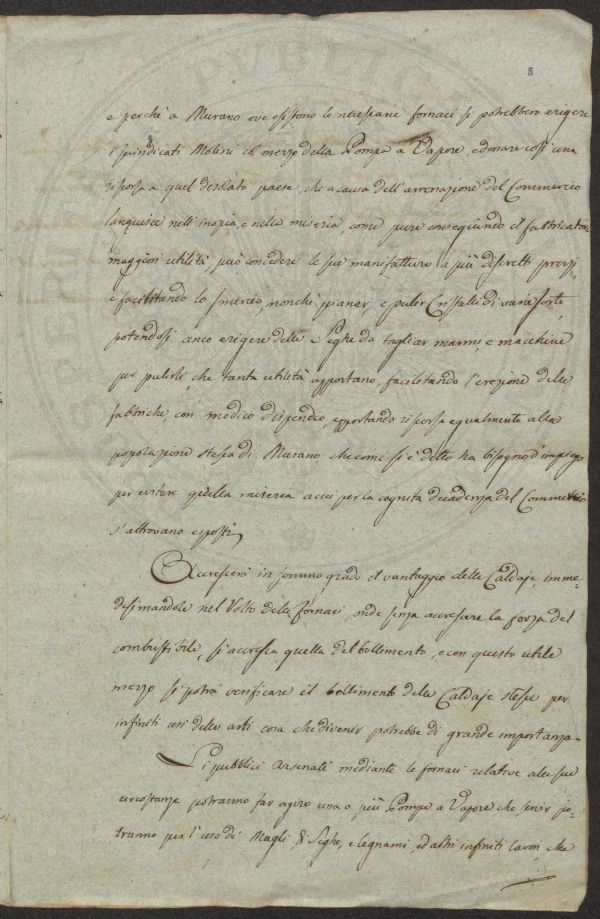 5
e perchè a Murano ove esistono le necessarie fornaci si potrebbero erigere
i quì indicati Molini col mezzo della Pompa a Vapore, e donare così una
risorsa a quel desolato paese, che a causa dell'arrenazione del Commercio
languisce nell'inopia, e nella miseria, come pure conseguindo il fabbricatore
maggiori utilità può concedere le sue manifatture a più discretti prezzi
e facilitando lo smercio, nonchè pianar, e pulir Cristalli di varie sorte,
potendosi anco erigere delle Seghe da tagliar marmi, e macchine
per pulirli, che tanta utilità apportano, facilitando l'erezione delle
fabbriche, con modico dispendio, apportando risorsa egualmente alla
popolazione stessa di Murano, che come si è detto ha bisogno d'impiego
per evitare quella miseria a cui per la cognita decadenza del Commercio
s'attrovano esposti,
Accrescerà in sommo grado il vantaggio delle Caldaje, imme=
desimandole nel Volto delle fornaci, onde senza accrescere la forza del
combustibile, si accresca quella del bollimento, e con questo utile
mezzo si potrà verificare il bollimento delle Caldaje stesse per
infiniti usi delle arti cosa che divenir potrebbe di grande importanza.
Li pubblici Arsenali mediante le fornaci relative alle sue
circostanze potranno far agire una o più Pompe a Vapore che servir po=
tranno per l'uso de' Magli, di Seghe, e legnami, ed altri infiniti lavori, che